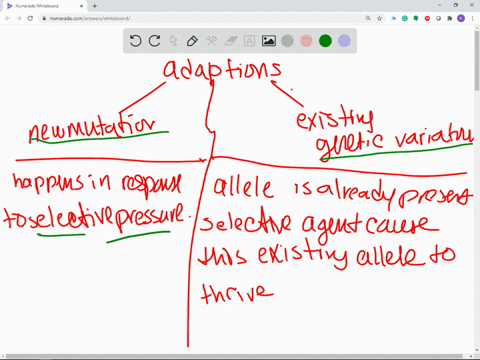 Numerade Whiteboard
numerade.com/answers/whiteboard/
adaptions
new mutation
existing
genetic variation
happens in response
to selective pressure.
allele is already present
selective agent cause
this existing allele to
thrive